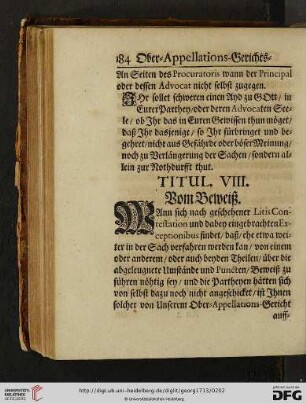 184 Ober-Appellations-Gerichts-
An Seiten des Procuratoris wann der Principal
oder dessen Advocat nicht selbst zugegen.
IHr sollet schweren einen Ayd zu GOtt / in
Eurer Parthey / oder deren Advocaten See-
le / ob Ihr das in Euren Gewissen thun möget /
daß Ihr dasjenige / so Ihr fürbringet und be-
gehret / nicht aus Gefährde oder böser Meinung /
noch zu Verlängerung der Sachen / sondern al-
lein zur Nothdurfft thut.
TITUL. VIII.
Vom Beweiß.
WAnn sich nach geschehener Litis Con-
testation und dabey eingebrachten Ex-
ceptionibus findet / daß / ehe etwa wei-
ter in der Sach verfahren werden kan / von einem
oder anderem / oder auch beyden Theilen / über die
abgeleugnete Umstände und Puncten / Beweiß zu
führen nöhtig sey / und die Partheyen hätten sich
von selbst dazu noch nicht angeschicket / ist Ihnen
solcher von Unserem Ober-Appellations-Gericht
auff-
UNIVERSITÄTS-
BIBLIOTHEK
HEIDELBERG
http://digi.ub.uni-heidelberg.de/diglit/georg1713/0202
© Universitätsbibliothek Heidelberg
gefördert durch die
DFG